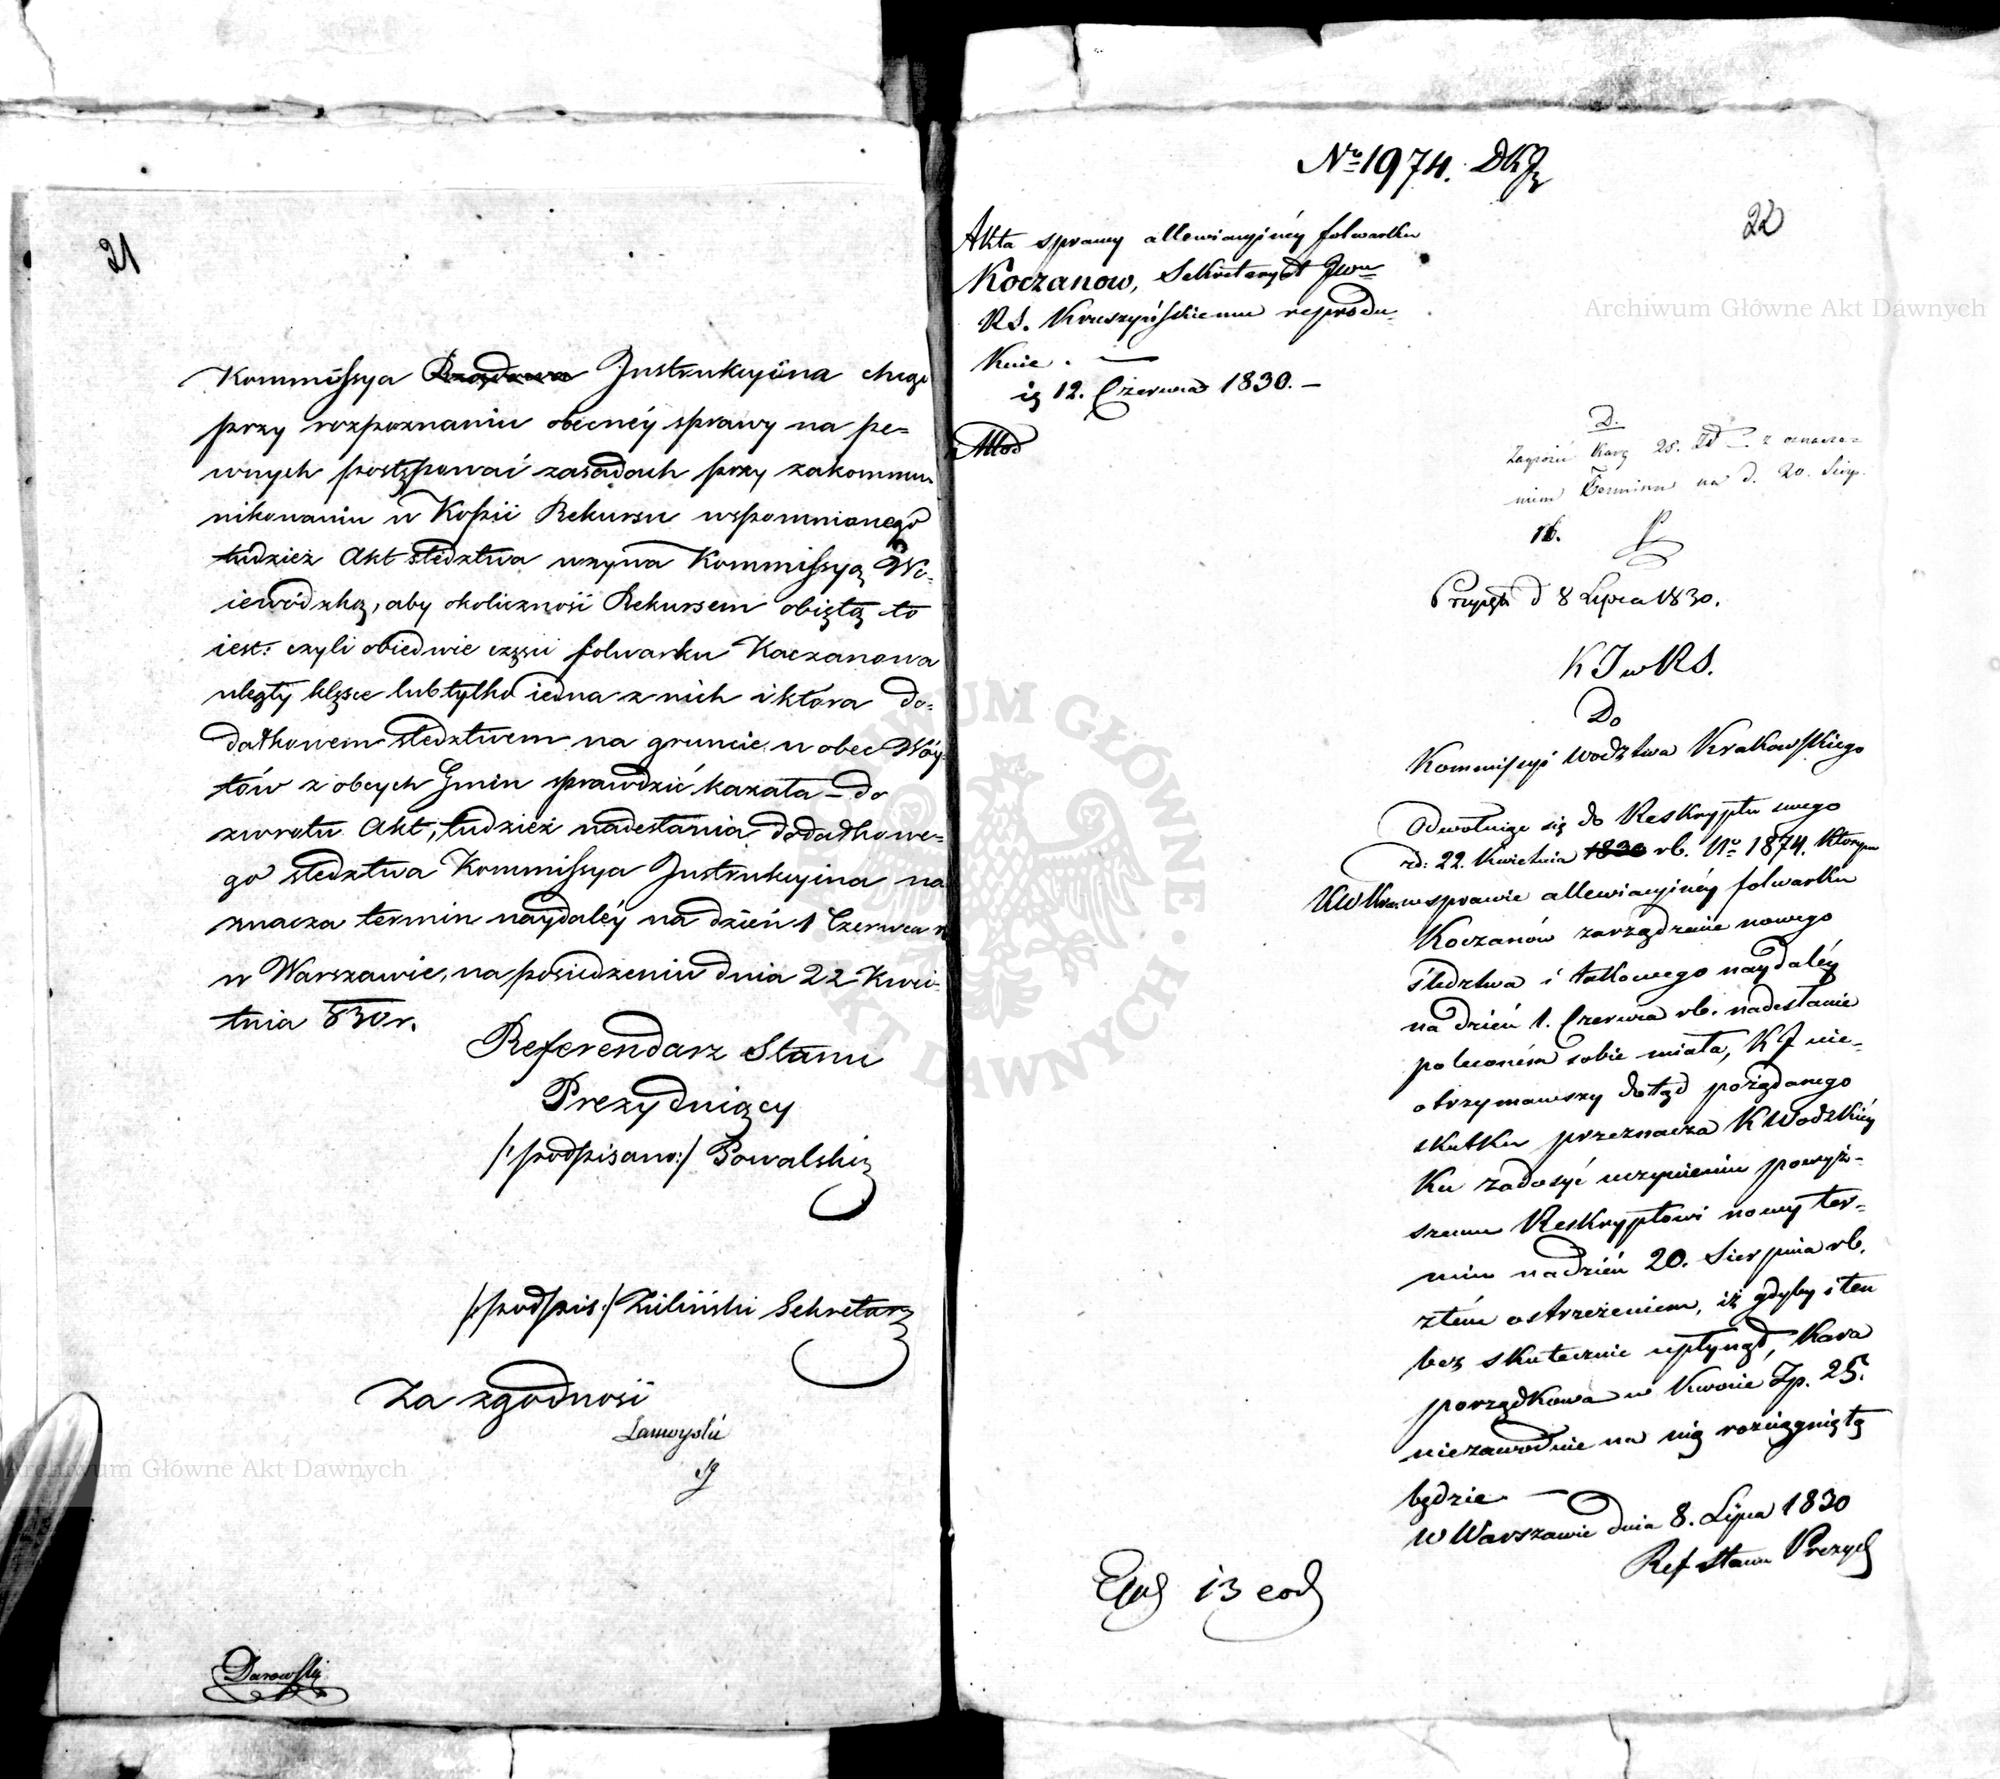 21
Kommissya Rządowa Instrukcyina chcąc
przy rozpoznaniu obecnéy sprawy na pe=
wnych postępować zasadach przy zakommu
nikowaniu w Kopii Rekursu wspomnianego
tudzież Akt śledztwa wzywa Kommissyą Wo=
iewódzką, aby okoliczność Rekursem obiętą to
iest: czyli obiedwie części folwarku Kaczanowa
uległy klęsce lub tylko iedna z nich i ktora do=
datkowem śledztwem na gruncie w obec Wóy=
tów z obcych Gmin sprawdzić kazała – do
zwrotu Akt, tudzież nadesłania dodatkowe=
go śledztwa Kommissya Instrukcyina na
znacza termin naydaléy na dzień 1 Czerwca rb
w Warszawie, na posiedzeniu dnia 22 Kwie=
tnia 830 r.
Referendarz Stanu
Prezyduiący
/:podpisano:/ Kowalski
/:podpis:/ Zieliński Sekretarz
Za zgodność
Darowski
Archiwum Główne Akt Dawnych
No 1974.
22
Akta sprawy allewiacyjnéy folwarku
Koczanow, Sekretaryat Jwu
RS. Kruszyńskiemu reprodu=
kuie. —
12. Czerwca 1830. –
D.
Zagrozić karą 25. Zł z oznacze=
niem Terminu na d. 20. Sierp.
rb.
Przyięto d 8 Lipca 1830.
K J w RS.
Do
Kommissyi Wodztwa Krakowskiego
Odwołuiąc się do Reskryptu swego
zd: 22. Kwietnia 1830 rb. No 1874. którym
KWKra. w sprawie allewiacyjnéy folwarku
Koczanów zarządzenie nowego
śledztwa i takowego naydaléy
na dzień 1. Czerwca rb. nadesłanie
poleconém sobie miała, KJ nie=
otrzymawszy dotąd pożądanego
skutku przeznacza KWodzkiéy
ku zadosyć uczynieniu powyż=
szemu Reskryptowi nowy ter=
min na dzień 20. Sierpnia rb.
z tém ostrzeżeniem, iż gdyby i ten
bez skutecznie upłynął, kara
porządkowa w kwocie Zp. 25.
niezawodnie na nią rozciągniętą
będzie —
w Warszawie dnia 8. Lipca 1830
Ref Stanu Prezyd
Archiwum Główne Akt Dawnych
ARCHIWUM GŁÓWNE AKT DAWNYCH